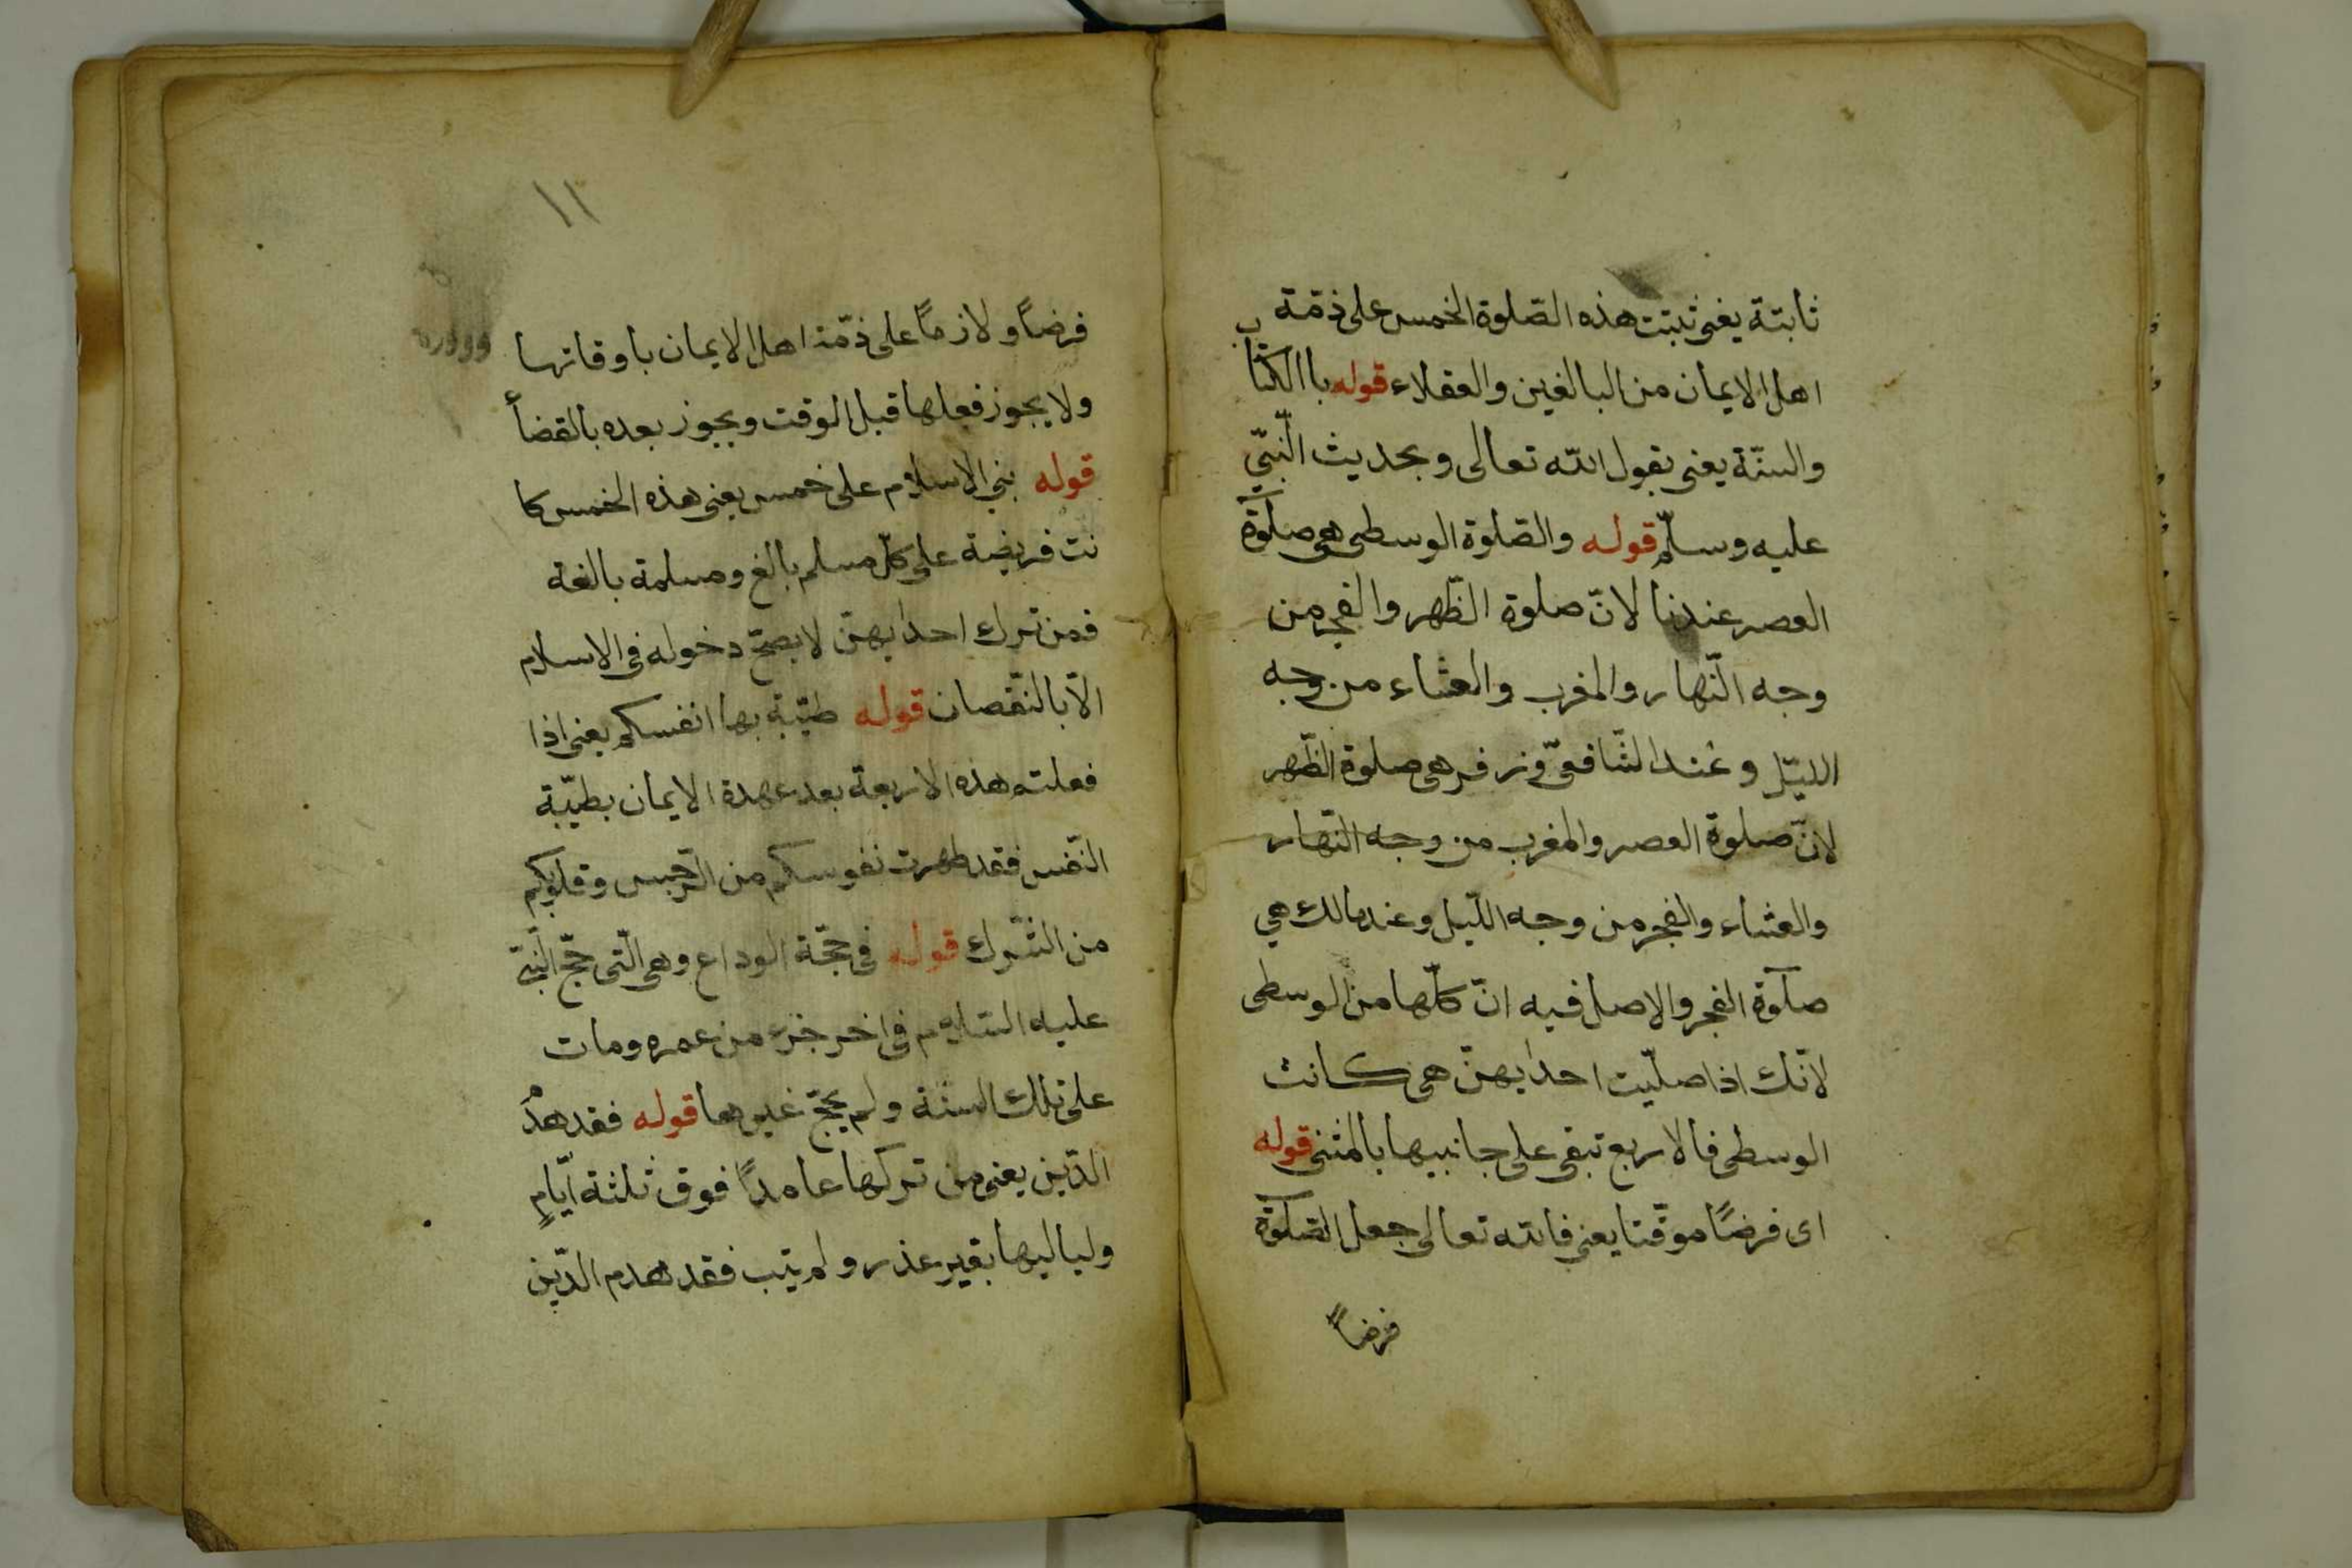 ثابتة يعنى ثبتت هذه الصّلوة الخمس على ذمّة
اهل الايمان من البالغين والعقلاء قوله باالكتاب
والسنّة يعنى بقول الله تعالى وبحديث النّبىّ
عليه وسلّم قوله والصّلوة الوسطى هى صلوة
العصر عندنا لانّ صلوة الظّهر والفجر من
وجه النّهار والمغرب والعشاء من وجه
الليّل وعند الشّافعىّ وزفر هى صلوة الظّهر
لانّ صلوة العصر والمغرب من وجه النّهار
والعشاء والفجر من وجه اللّيل وعند مالك هي
صلوة الفجر والاصل فيه انّ كلّها من الوسطى
لانّك اذا صلّيت احدايهنّ هى كانت
الوسطى فالاربع تبقى على جانبيها بالمثنى قوله
اى فرضًا موقّتا يعنى فالله تعالى جعل الصّلوة
فرضاً
١١
فرضاً ولازماً على ذمّة اهل الايمان باوقاتها
ولا يجوز فعلها قبل الوقت ويجوز بعده بالقضأ
قوله بني الاسلام على خمس يعنى هذه الخمس كا
نت فريضة على كلّ مسلم بالغ ومسلمة بالغة
فمن ترك احدايهنّ لا يصحّ دخوله فى الاسلام
الّا بالنّقصان قوله طيّبة بها انفسكم يعنى اذا
فعلتم هذه الاربعة بعد عهدة الايمان بطيّبة
النّفس فقد طهرت نفوسكم من الرّجس وقلوبكم
من الشّرك قوله فى حجّة الوداع وهى الّتى حجّ النّبىّ
عليه السّلام فى اخر جزء من عمره ومات
على تلك السنة ولم يحجّ غيرها قوله فقد هدم
الدّين يعنى من تركها عامداً فوق ثلثة ايّامٍ
ولياليها بقير عذر ولم يتب فقد هدم الدّين